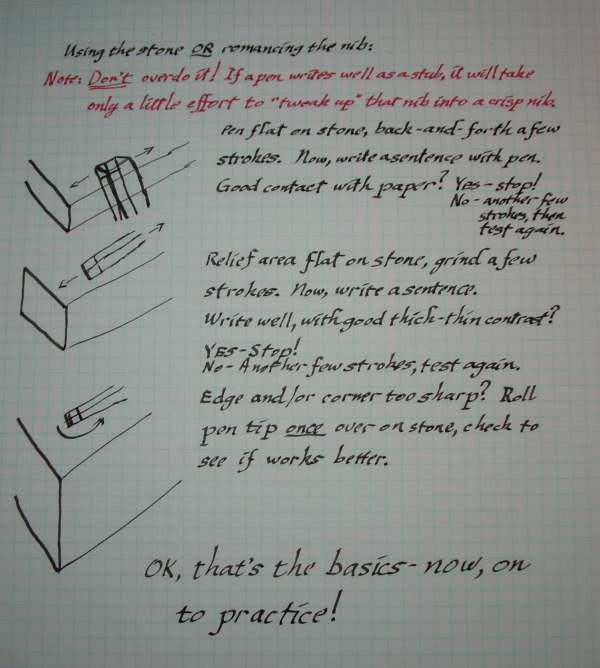 Using the stone OR romancing the nib:
Note: Don't overdo it! If a pen writes well as a stub, it will take
only a little effort to "tweak up" that nib into a crisp nib.
Pen flat on stone, back-and-forth a few
strokes. Now, write a sentence with pen.
Good contact with paper? Yes - stop!
No - another few
strokes, then
test again.
Relief area flat on stone, grind a few
strokes. Now, write a sentence.
Write well, with good thick-thin contrast?
YES - Stop!
No - Another few strokes, test again.
Edge and/or corner too sharp? Roll
pen tip once over on stone, check to
see if works better.
OK, that's the basics - now, on
to practice!